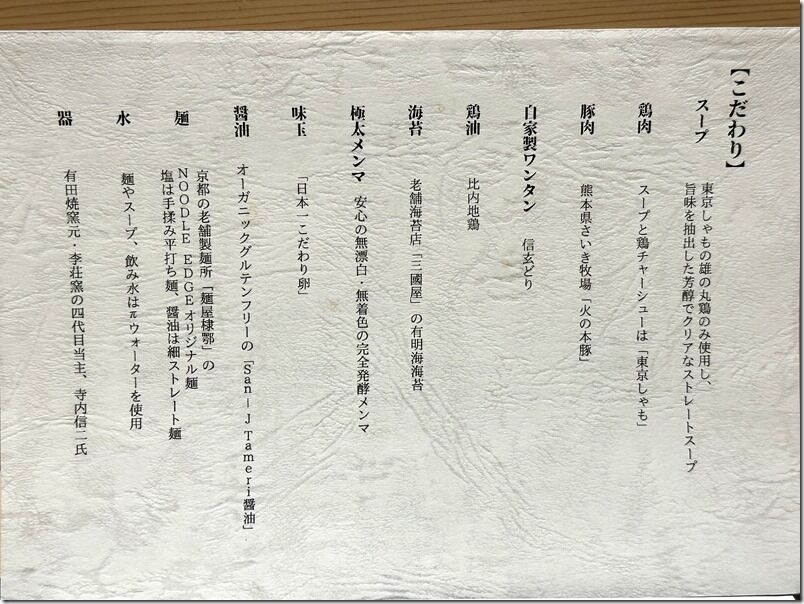 【こだわり】
スープ
東京しゃもの雄の丸鶏のみ使用し、
旨味を抽出した芳醇でクリアなストレートスープ
鶏肉 スープと鶏チャーシューは「東京しゃも」
豚肉 熊本県さいき牧場「火の本豚」
自家製ワンタン 信玄どり
鶏油 比内地鶏
海苔 老舗海苔店「三國屋」の有明海海苔
極太メンマ 安心の無漂白・無着色の完全発酵メンマ
味玉 「日本一こだわり卵」
醤油 オーガニックグルテンフリーの「San－J Tameri醤油」
麺 京都の老舗製麺所「麺屋棣鄂」の
NOODLE EDGEオリジナル麺
塩は手揉み平打ち麺、醤油は細ストレート麺
水 麺やスープ、飲み水はπウォーターを使用
器 有田焼窯元・李荘窯の四代目当主、寺内信二氏